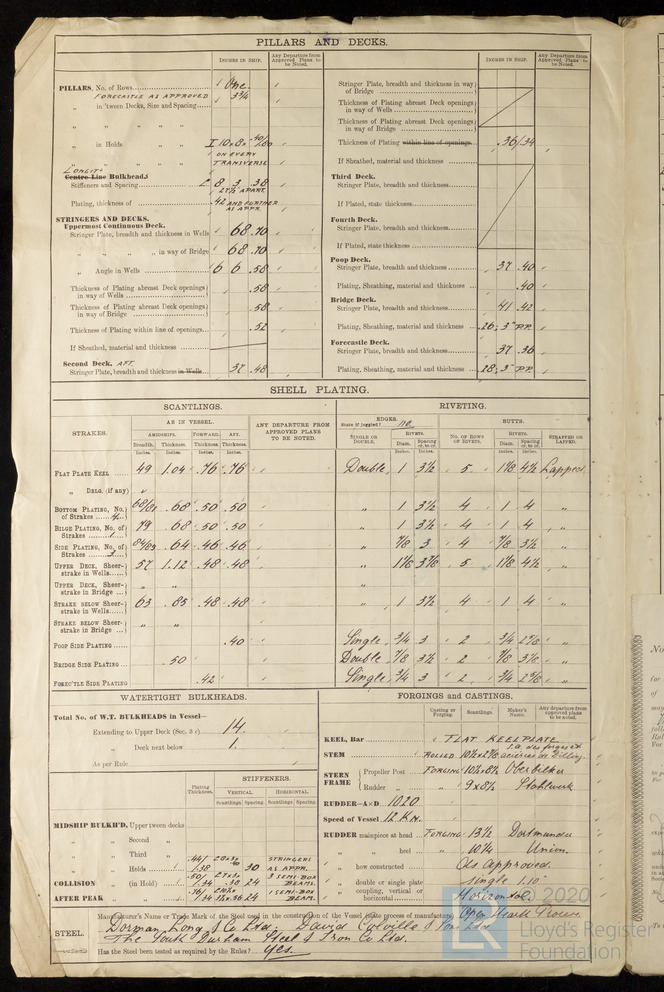 PILLARS AND DECKS.
INCHES IN SHIP.
Any Departure from Approved Plans to be Noted.
PILLARS, No. of Rows One.
FORECASTLE AS APPROVED
„ in 'tween Decks, Size and Spacing 3¾
„ „ „ „
„ in Holds I 10 x 8 x .40/.60
ON EVERY
TRANSVERSE
LONGITL
Centre Line Bulkheads
Stiffeners and Spacing 8 3 .38
27½ APART.
Plating, thickness of .42 AND FURTHER
AS APPR.
STRINGERS AND DECKS.
Uppermost Continuous Deck.
Stringer Plate, breadth and thickness in Wells 68 .70
„ „ „ „ in way of Bridge 68 .70
„ Angle in Wells 6 6 .58
Thickness of Plating abreast Deck openings in way of Wells .58
Thickness of Plating abreast Deck openings in way of Bridge .58
Thickness of Plating within line of openings .52
If Sheathed, material and thickness
Second Deck. AFT.
Stringer Plate, breadth and thickness in Wells 37 .48
INCHES IN SHIP.
Any Departure from Approved Plans to be Noted.
Stringer Plate, breadth and thickness in way of Bridge
Thickness of Plating abreast Deck openings in way of Wells
Thickness of Plating abreast Deck openings in way of Bridge
Thickness of Plating within line of openings .36/34
If Sheathed, material and thickness
Third Deck.
Stringer Plate, breadth and thickness
If Plated, state thickness
Fourth Deck.
Stringer Plate, breadth and thickness
If Plated, state thickness
Poop Deck.
Stringer Plate, breadth and thickness 37 .40
Plating, Sheathing, material and thickness .40
Bridge Deck.
Stringer Plate, breadth and thickness 41 .42
Plating, Sheathing, material and thickness .26, 3" P.P.
Forecastle Deck.
Stringer Plate, breadth and thickness 37 .36
Plating, Sheathing, material and thickness .28, 3" P.P.
SHELL PLATING.
SCANTLINGS.
RIVETING.
STRAKES.
AS IN VESSEL.
AMIDSHIPS. FORWARD. AFT.
Breadth. Thickness. Thickness. Thickness.
Inches. Inches. Inches. Inches.
ANY DEPARTURE FROM APPROVED PLANS TO BE NOTED.
EDGES.
State if joggled? no
SINGLE OR DOUBLE.
RIVETS.
Diam. Spacing cr. to cr.
Inches. Inches.
BUTTS.
NO. OF ROWS OF RIVETS.
RIVETS.
Diam. Spacing cr. to cr.
Inches. Inches.
STRAPPED OR LAPPED.
FLAT PLATE KEEL 49 1.04 .76 .76 Double 1 3½ 5 1⅛ 4½ Lapped
„ DBLG. (if any) „
BOTTOM PLATING, No. of Strakes 4 68/81 .68 .50 .50 „ 1 3½ 4 1 4 „
BILGE PLATING, No. of Strakes 1 79 .68 .50 .50 „ 1 3½ 4 1 4 „
SIDE PLATING, No. of Strakes 3 84/89 .64 .46 .46 „ ⅞ 3 4 ⅞ 3½ „
UPPER DECK, Sheerstrake in Wells 57 1.12 .48 .48 „ 1⅛ 3⅞ 5 1⅛ 4½ „
UPPER DECK, Sheerstrake in Bridge „ „ „
STRAKE BELOW SHEERstrake in Wells 63 .85 .48 .48 „ 1 3½ 4 1 4 „
STRAKE BELOW SHEERstrake in Bridge „ „
POOP SIDE PLATING .40 Single ¾ 3 2 ¾ 2⅝ „
BRIDGE SIDE PLATING .50 Double ⅞ 3½ 2 ⅞ 3⅛ „
FORE'C'TLE SIDE PLATING .42 Single ¾ 3 2 ¾ 2⅝ „
WATERTIGHT BULKHEADS.
Total No. of W.T. BULKHEADS in Vessel—
Extending to Upper Deck (Sec. 3 c) 14.
„ Deck next below 1.
As per Rule
Plating Thickness.
STIFFENERS.
VERTICAL. HORIZONTAL.
Scantlings. Spacing. Scantlings. Spacing.
MIDSHIP BULKH'D, Upper tween decks
„ „ Second „
„ „ Third „
„ „ Holds .44/.38 30 STRINGERS AS APPR.
COLLISION „ (in Hold) .34 .38 24 3 SEMI-BOX BEAMS.
AFTER PEAK „ „ .34 24 1 SEMI-BOX BEAM.
FORGINGS and CASTINGS.
Casting or Forging. Scantlings. Maker's Name. Any departure from approved plans to be noted.
KEEL, Bar FLAT KEELPLATE
STEM ROLLED 10½ x 2⅞ S.A. des forges et aciéries de Dilling
STERN FRAME
Propeller Post FORGING 10½ x 8½ Oberbilker
Rudder „ „ 9 x 8½ Stahlwerk
RUDDER—A×D 1020.
Speed of Vessel 12 KN.
RUDDER mainpiece at head FORGING 13½ Dortmunder
„ „ heel „ 10¼ Union.
„ how constructed As Approved.
„ double or single plate single 1.10"
„ coupling, vertical or horizontal Horizontal.
STEEL.
Manufacturer's Name or Trade Mark of the Steel used in the construction of the Vessel (state process of manufacture) Open Hearth Process
Dorman Long & Co Ltd. David Colville & Sons Ltd
The South Durham Steel & Iron Co Ltd.
Has the Steel been tested as required by the Rules? Yes.
© 2020
Lloyd's Register
Foundation